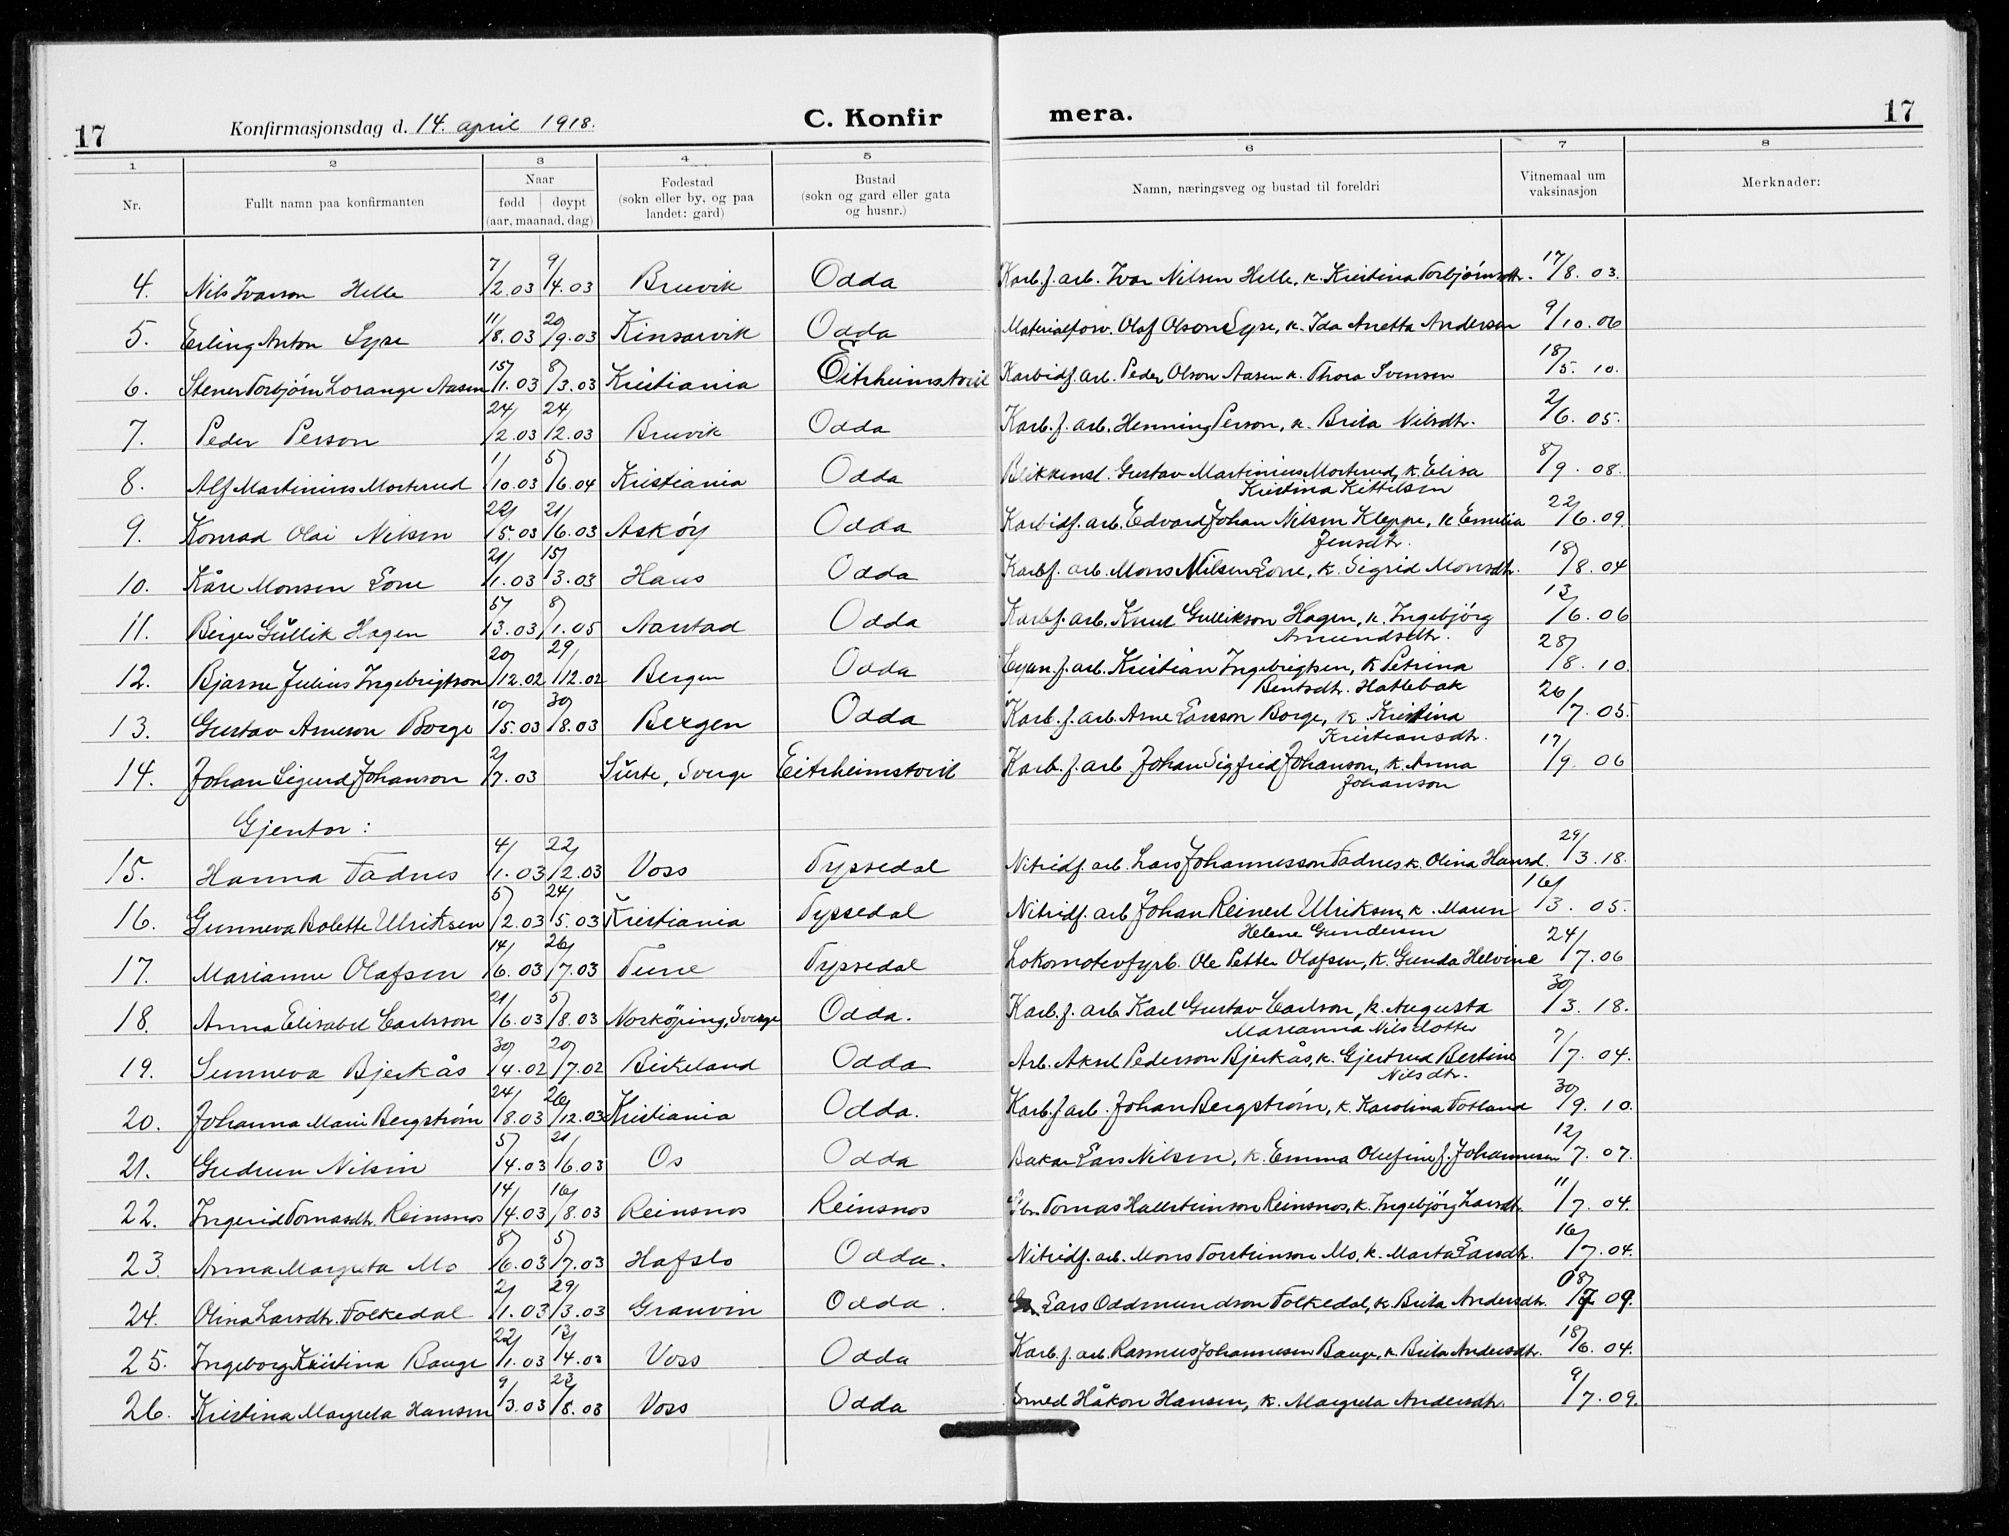 17 Konfirmasjonsdag d. 14. april 1918. C. Konfir mera. 17
1 2 3 4 5 6 7 8
Nr. Fullt namn paa konfirmanten Naar fødd døypt (aar, maanad, dag) Fødestad (sokn eller by, og paa landet: gard) Bustad (sokn og gard eller gata og husnr.) Namn, næringsveg og bustad til foreldri Vitnemaal um vaksinasjon Merknader:
4. Nils Ivarson Helle 7/2.03 9/4.03 Bruvik Odda Karb.f. arb. Ivar Nilsen Helle, k. Kristina Torbjørnsdtr. 17/8. 03.
5. Erling Anton Syre 11/8.03 20/9.03 Kinsarvik Odda Materialforv. Olaf Olson Syre, k. Ida Anetta Andersen 9/10.06
6. Stener Torbjørn Lorange Aasen 15/1.03 8/3.03 Kristiania Eitrheimstvil Karbidf. arb. Peder Olson Aasen k. Thora Svensen 18/5. 10.
7. Peder Person 24/2.03 24/2.03 Bruvik Odda Karb.f. arb. Henning Person, k. Brita Nilsdtr. 2/6. 05.
8. Alf Martinius Morterud 1/10.03 5/6.04 Kristiania Odda Blikkensl. Gustav Martinius Morterud, k. Elisa
Kristina Kittilsen 8/9. 08.
9. Konrad Olai Nilsen 22/5.03 21/6.03 Askøy Odda Karbidf. arb. Edvard Johan Nilsen Kleppe, k. Emilia
Jensdtr. 22/6.09.
10. Kåre Monsen Lone 21/1.03 15/3.03 Haus Odda Karbf. arb. Mons Nilsen Lone, k. Sigrid Monsdtr. 18/8.04
11. Birger Gullik Hagen 5/3.03 8/1.05 Aarstad Odda Karbf. arb. Knut Gullikson Hagen, k. Ingebjørg
Amundsdtr. 13/6.06
12. Bjarne Julius Ingebrigtson 20/12.02 29/12.02 Bergen Odda Cyan.f. arb. Kristian Ingebrigtsen, k. Petrina
Bentsdtr. Hatlebak 28/8.10.
13. Gustav Arneson Borge 10/5.03 30/8.03 Bergen Odda Karb.f. arb. Arne Larsson Borge, k. Kristina
Kristiansdtr. 26/7.05.
14. Johan Sigurd Johanson 2/7.03 Surte, Sverge Eitrheimstvil Karb.f. arb. Johan Sigfrid Johanson, k. Anna
Johanson 17/9. 06
Gjentor:
15. Hanna Tadnes 4/1.03 22/2.03 Voss Tyssedal Nitridf. arb. Lars Johannesson Tadnes k. Olina Hansd. 29/3.18.
16. Gunneva Bolette Ulriksen 5/2.03 24/5.03 Kristiania Tyssedal Nitridf. arb Johan Reinert Ulriksen, k. Maren
Helene Gundersen 16/3. 05.
17. Marianne Olafsen 14/6.03 26/7.03 Tune Tyssedal Lokomotivfyrb. Ole Petter Olafsen, k. Gunda Helvine 24/7.06
18. Anna Elisabet Carlsson 21/6.03 5/8.03 Norköping, Sverge Odda. Karb.f. arb. Karl Gustav Carlson, k. Augusta
Marianna Nilsdotter 30/3. 18.
19. Sunneva Bjerkås 30/4.02 20/7.02 Birkeland Odda Arb. Aksel Pederson Bjerkås, k. Gjertrud Bertine
Nilsdtr. 7/7. 04.
20. Johanna Marie Bergstrøm 24/8.03 26/12.03 Kristiania Odda. Karb.f. arb. Johan Bergstrøm, k. Karolina Totland 30/9. 10.
21. Gudrun Nilsen 5/4.03 21/6.03 Os Odda Bakar Lars Nilsen, k. Emma Olufine f. Johannesen 12/7. 07.
22. Ingerid Tomasdtr. Reinsnos 14/4.03 16/8.03 Reinsnos Reinsnos Gbr. Tomas Hallsteinson Reinsnos, k. Ingebjørg Larsdtr. 11/7.04.
23. Anna Margreta Mo 8/6.03 5/7.03 Hafslo Odda. Nitridf. arb. Mons Torsteinson Mo, k. Marta Larsdtr. 16/7.04.
24. Olina Larsdtr. Folkedal 2/1.03 29/3.03 Granvin Odda. Lars Oddmundson Folkedal, k. Brita Andersdtr. 8/7 09.
25. Ingeborg Kristina Bauge 22/1.03 13/4.03 Voss Odda Karb.f. arb. Rasmus Johannesen Bauge, k. Brita Andersdtr. 18/6. 04.
26. Kristina Margreta Hansen 9/3.03 23/8.03 Voss Odda Smed Håkon Hansen, k. Margreta Andersdtr. 9/7.09.